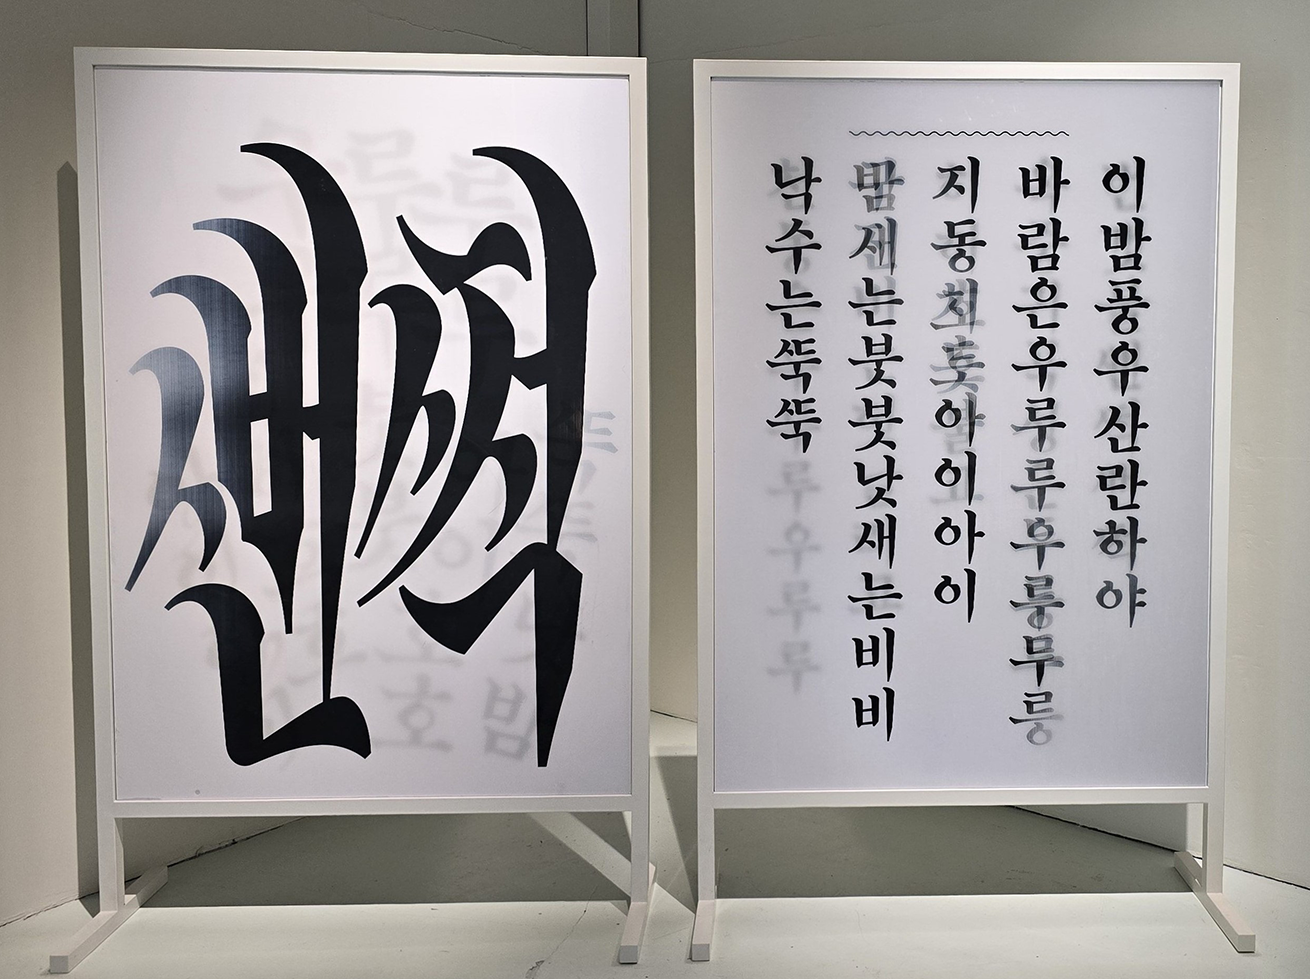 ᄲᅥᆫᄶᅥᆨ
이밤풍우산란하야
바람은우루루우릉무릉
지동 아이아이
밤새는붓붓낫새는비비
낙수는ᄯᅮᆨᄯᅮᆨ